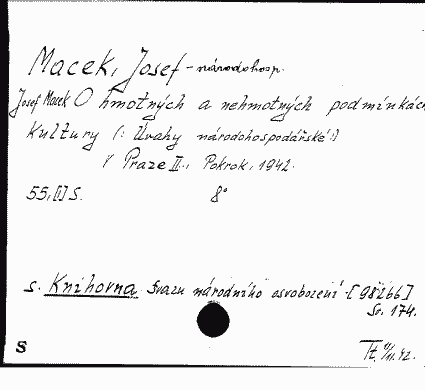 Macek, Josef - národohosp.
Josef Macek O hmotných a nehmotných podmínkách
kultury (: Úvahy národohospodářské :)
V Praze II., Pokrok, 1942.
55, [1] s. 8°
s. Knihovna Svazu národního osvobození - [98266]
Sv. 174.
S